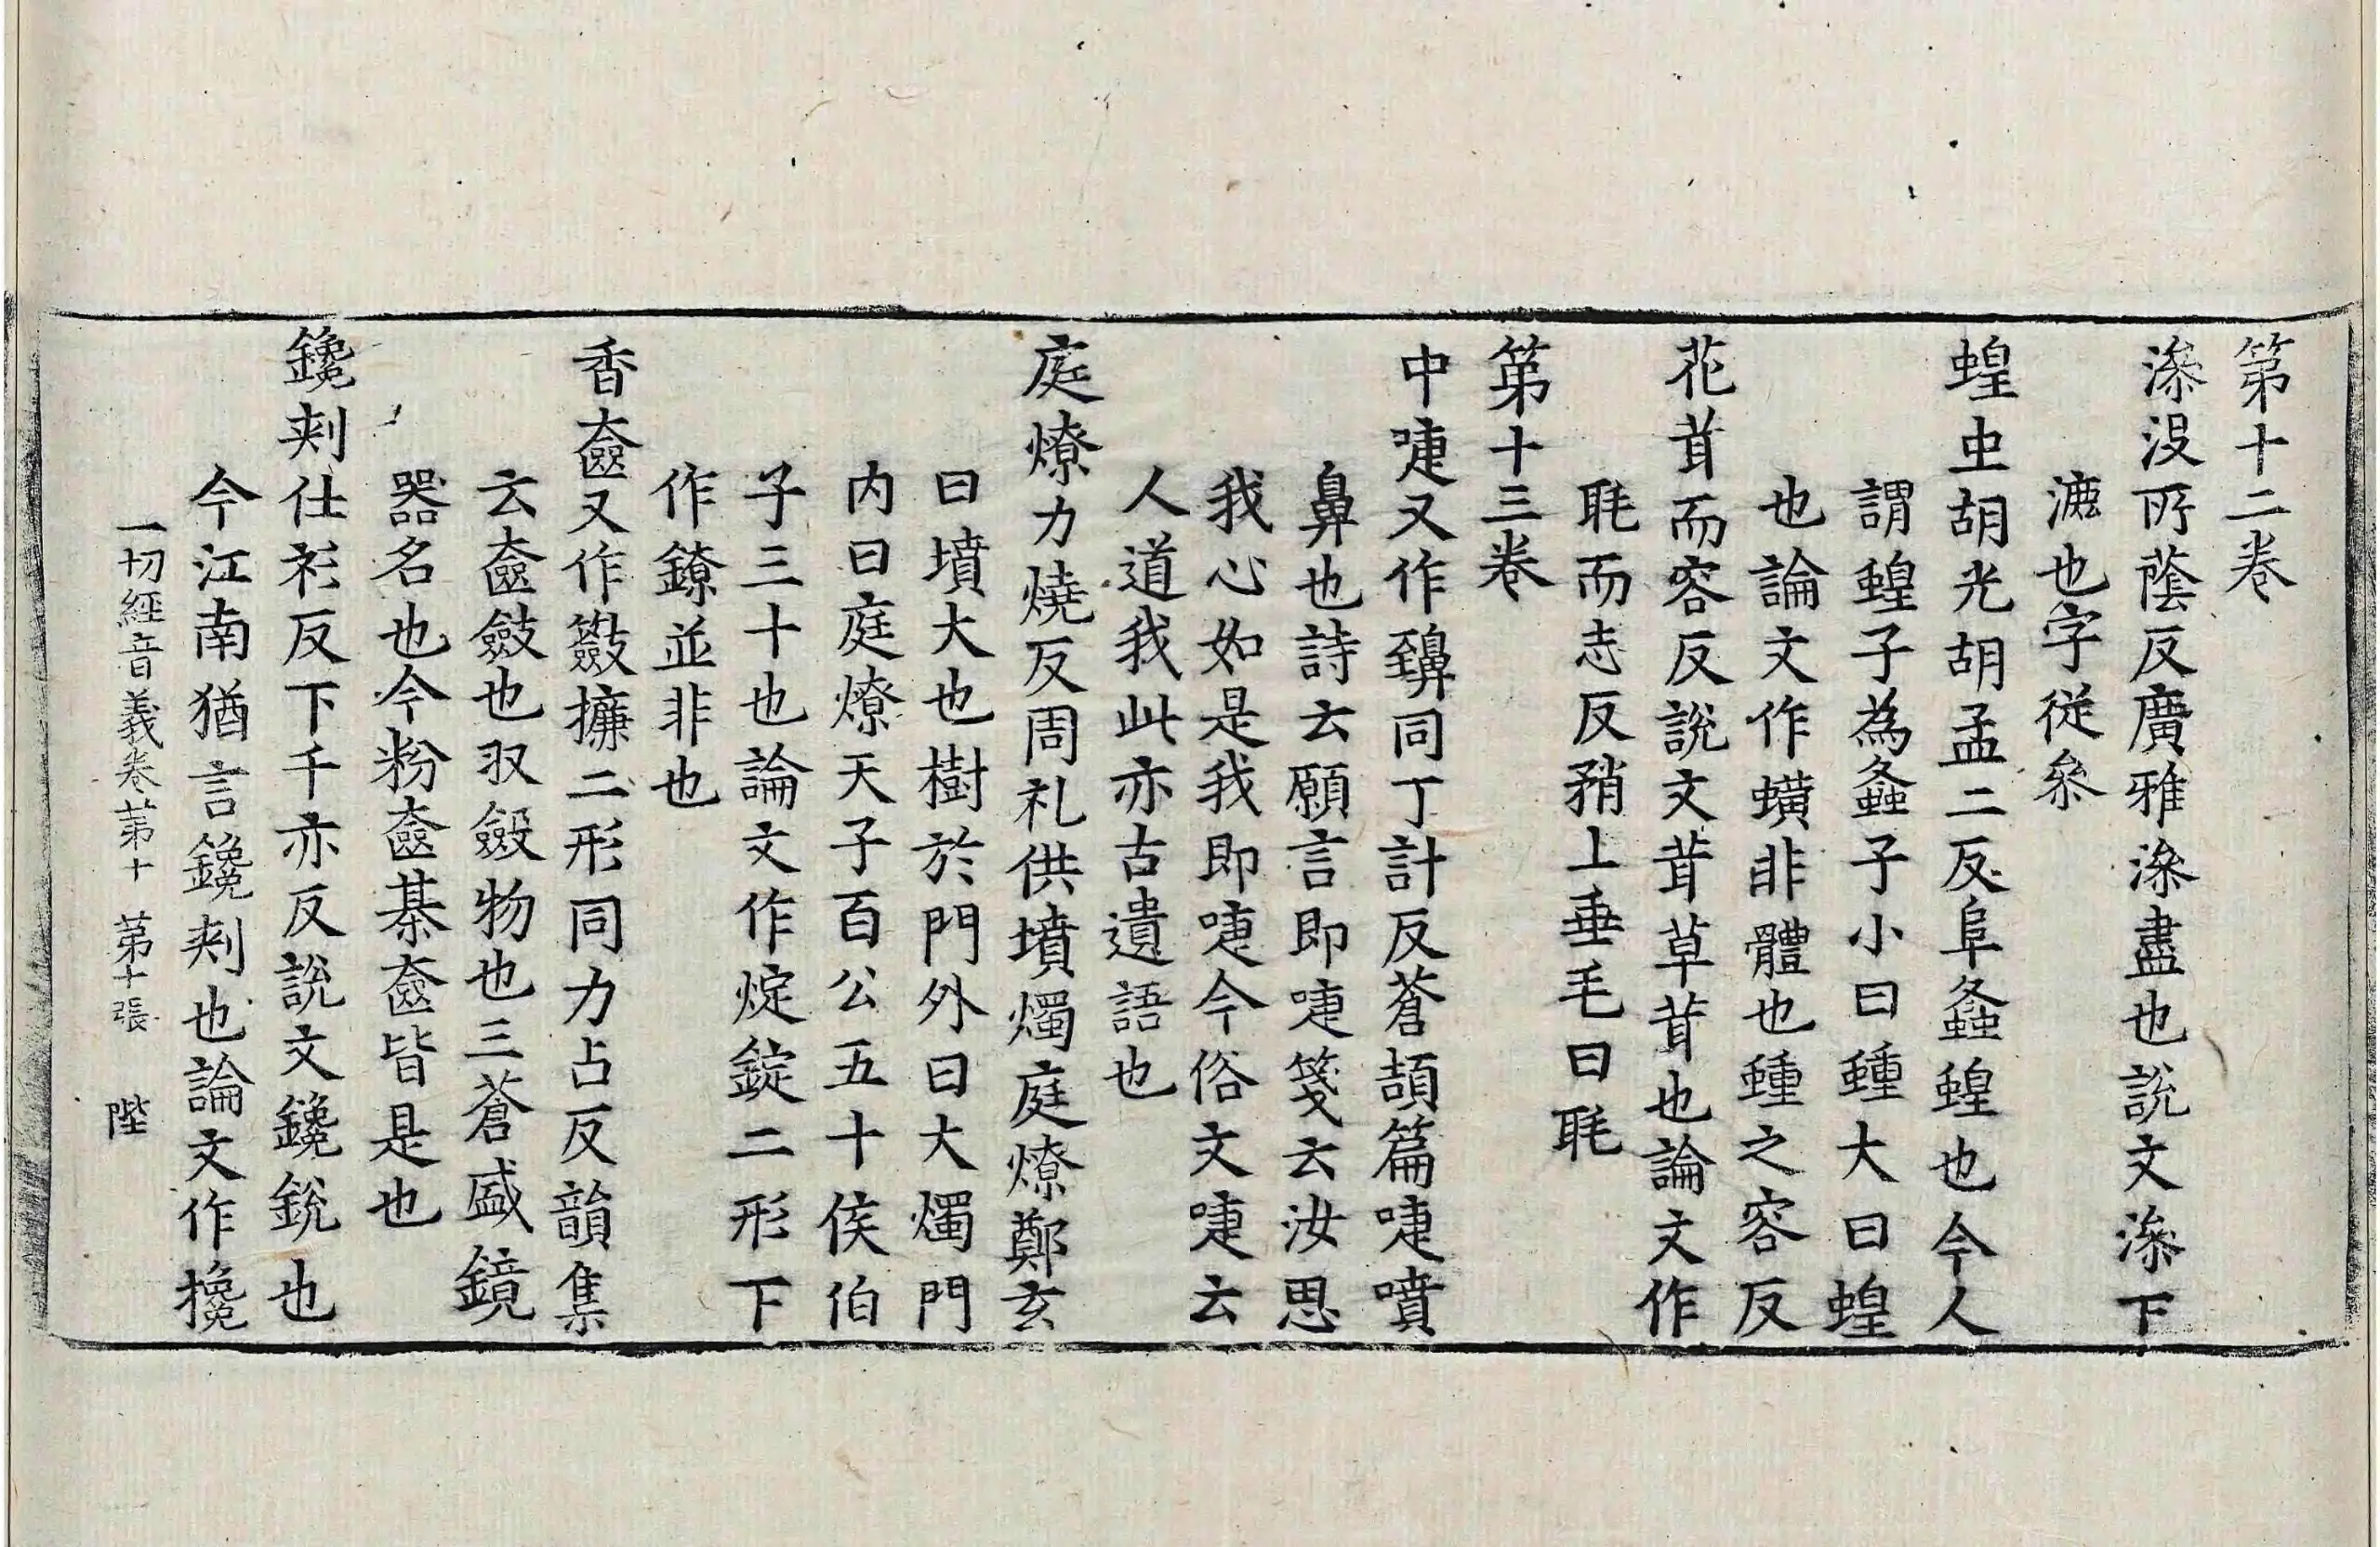 第十二卷
滲没所蔭反廣雅滲盡也説文滲下
漉也字從叅
蝗虫胡光胡孟二反阜螽蝗也今人
謂蝗子為螽子小曰蝩大曰蝗
也論文作蟥非體也蝩之容反
花茸而容反説文茸草茸也論文作
毦而志反矟上垂毛曰毦
第十三卷
中嚏又作𪖿同丁計反蒼頡篇嚏噴
鼻也詩云願言即嚏箋云汝思
我心如是我即嚏今俗文嚏云
人道我此亦古遺語也
庭燎力燒反周礼供墳燭庭燎鄭玄
曰墳大也樹於門外曰大燭門
内曰庭燎天子百公五十侯伯
子三十也論文作㝎錠二形下
作鐐並非也
香奩又作籢㩺二形同力占反韻集
云奩斂也収斂物也三蒼盛鏡
器名也今粉奩棊奩皆是也
鑱刾仕衫反下千亦反説文鑱鋭也
今江南猶言鑱刾也論文作攙
一切經音義卷第十 第十張 陛